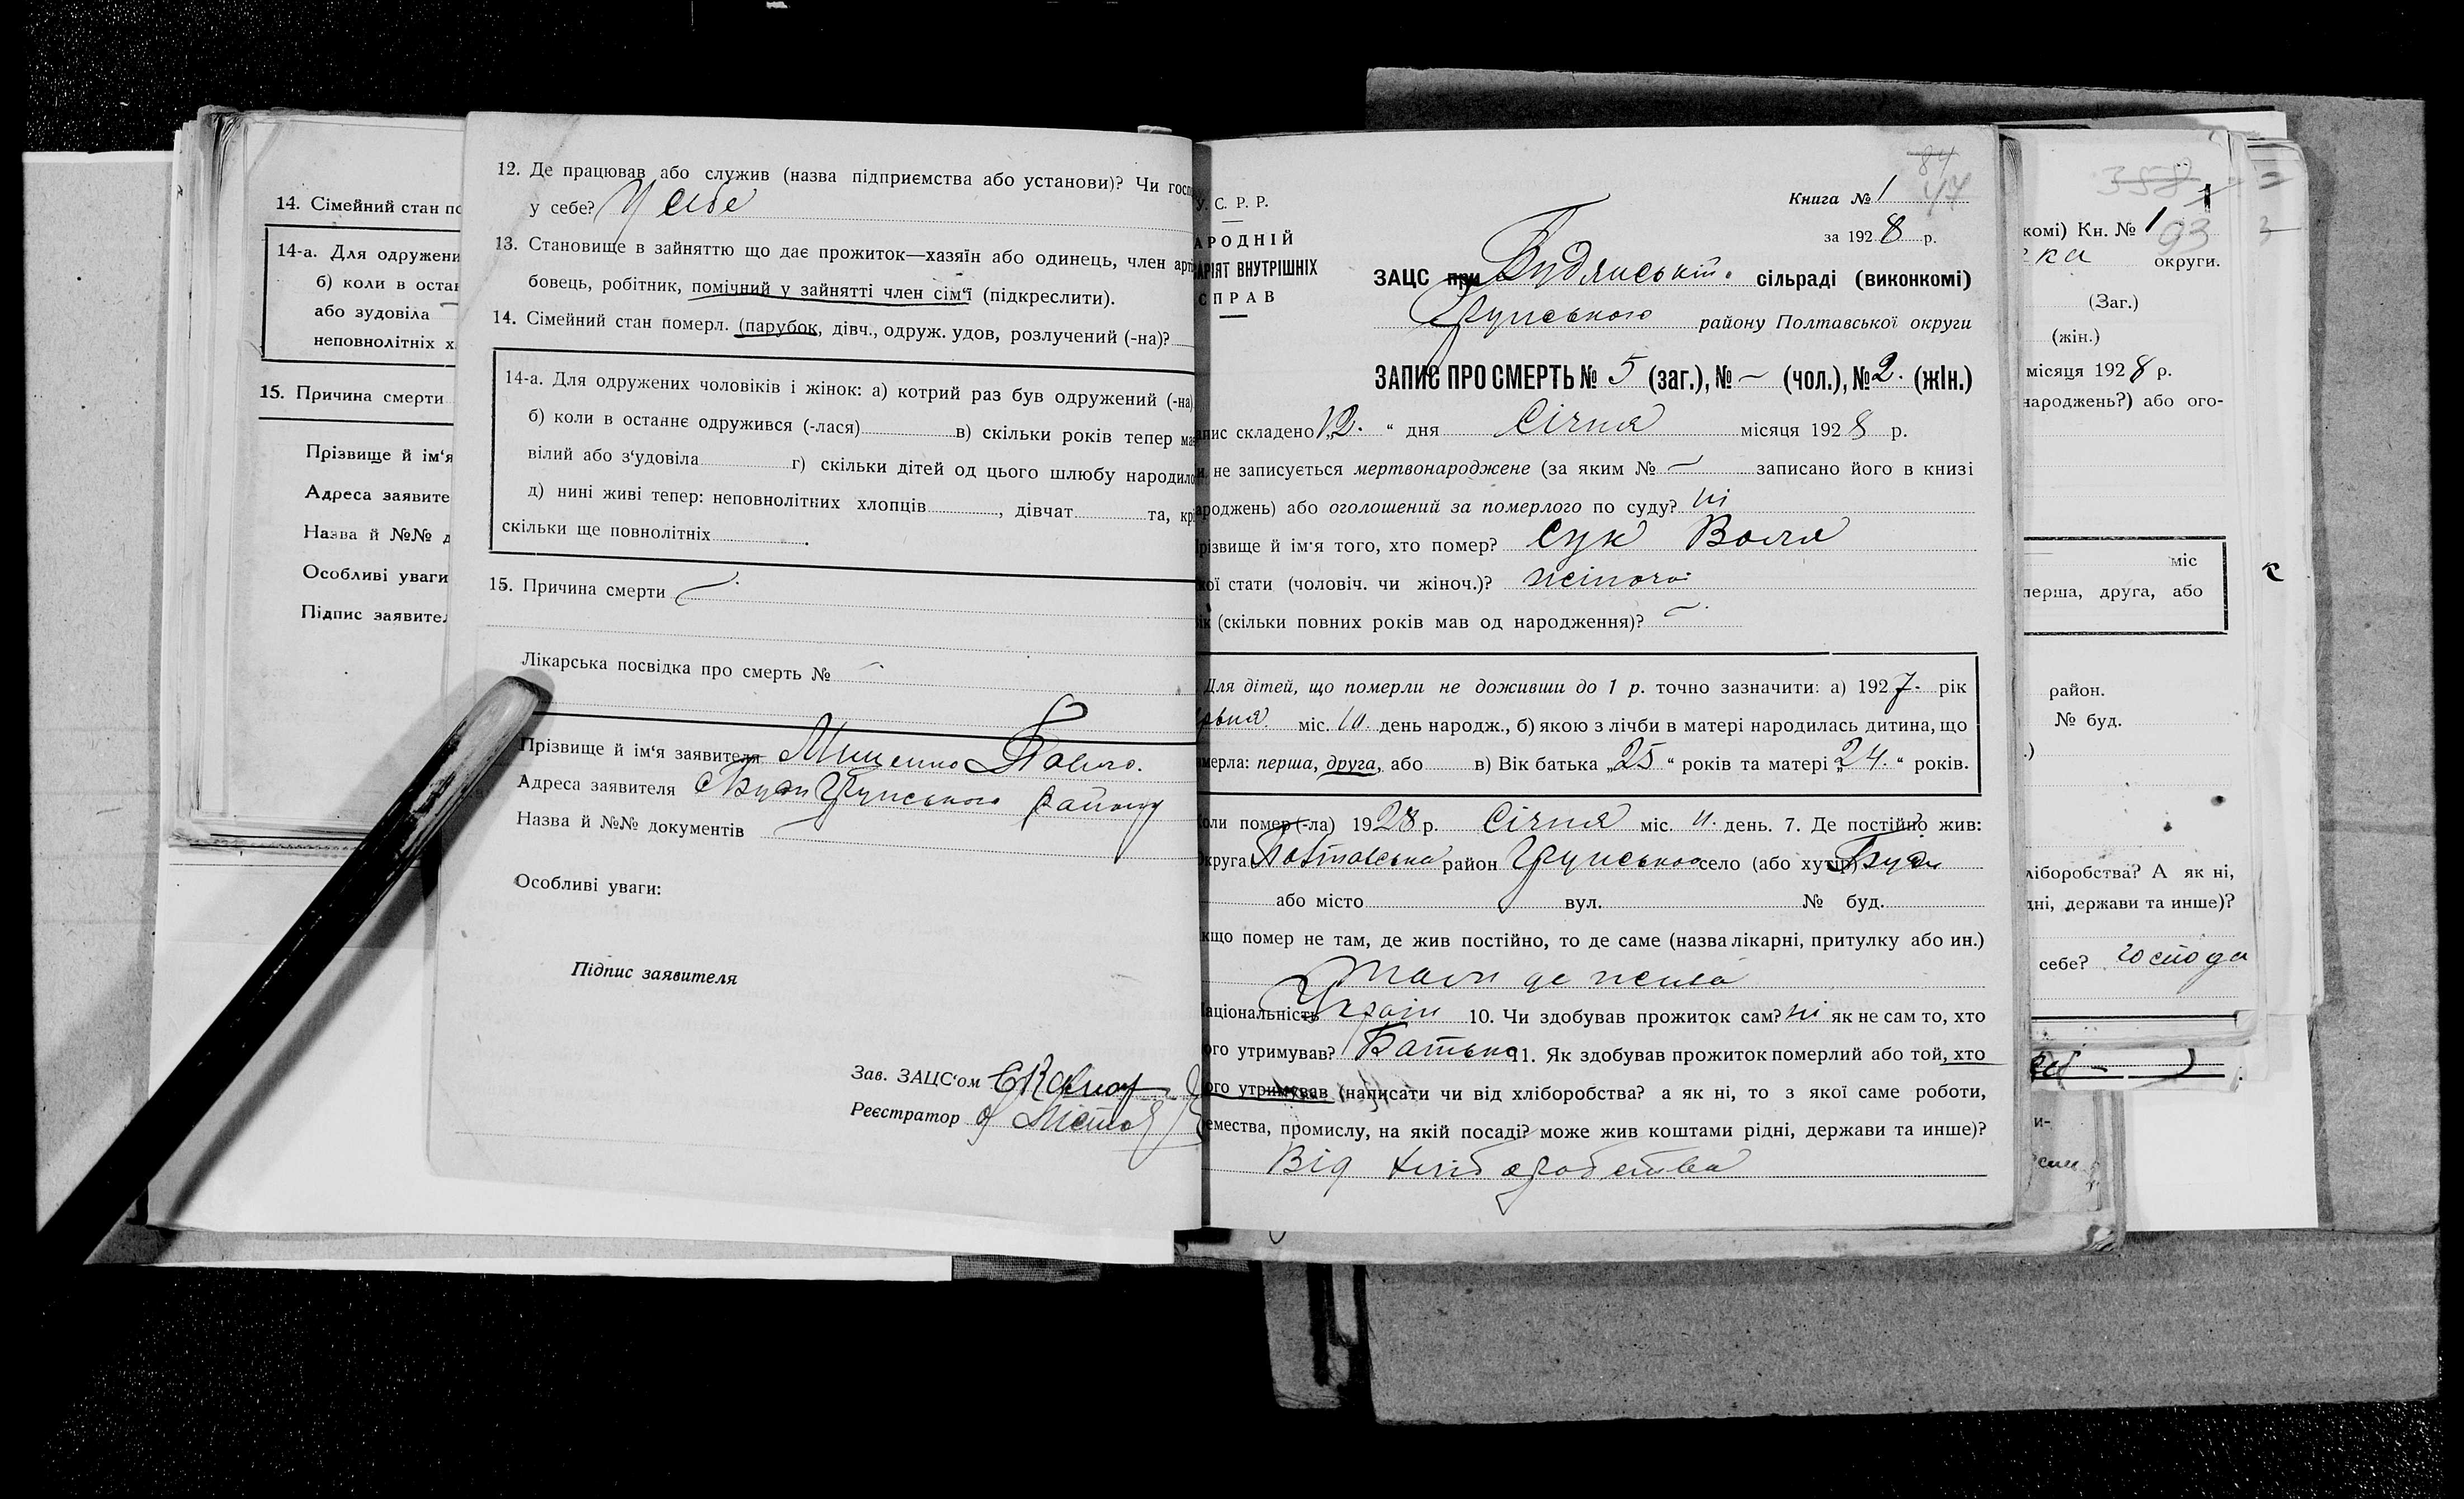 14. Сімейний стан по
14-а. Для одружени
б) коли в остан
або зудовіла
неповнолітніх х
15. Причина смерти
Прізвище й ім‘я
Адреса заявите
Назва й №№ д
Особливі уваги
Підпис заявител
12. Де працював або служив (назва підприємства або установи)? Чи госп
у себе? У себе
13. Становище в зайняттю що дає прожиток—хазяїн або одинець, член арт
бовець, робітник, помічний у зайнятті член сім‘ї (підкреслити).
14. Сімейний стан померл. (парубок, дівч., одруж. удов, розлучений (-на)?
14-а. Для одружених чоловіків і жінок: а) котрий раз був одружений (-на)
б) коли в останнє одружився (-лася) в) скільки років тепер ма
вілий або з‘удовіла г) скільки дітей од цього шлюбу народило
д) нині живі тепер: неповнолітних хлопців, дівчат та, кр
скільки ще повнолітніх.
15. Причина смерти —
Лікарська посвідка про смерть № —
Прізвище й ім‘я заявителя Мищенко Павло.
Адреса заявителя с Буди Грунського району
Назва й №№ документів —
Особливі уваги:
Підпис заявителя
Зав. ЗАЦС‘ом
Реєстратор
84
47
Книга № 1
за 1928 р.
У. С. Р. Р.
АРОДНІЙ
АРІЯТ ВНУТРІШНІХ
СПРАВ
ЗАЦС при Будянській сільраді (виконкомі)
Грунського району Полтавської округи
ЗАПИС ПРО СМЕРТЬ № 5 (заг.), № — (чол.), № 2. (жін.)
апис складено „12. “ дня Січня місяця 1928 р.
и не записується мертвонароджене (за яким № — записано його в книзі
ароджень) або оголошений за померлого по суду? ні
різвище й ім‘я того, хто помер? Сук Воля
кої стати (чоловіч. чи жіноч.)? жіночої
ік (скільки повних років мав од народження)? —
Для дітей, що померли не доживши до 1 р. точно зазначити: а) 1927. рік
рвня міс. 10. день народж., б) якою з лічби в матері народилась дитина, що
мерла: перша, друга, або в) Вік батька „25 “ років та матері „24. “ років.
оли помер(-ла) 1928 р. Січня міс. 11. день. 7. Де постійно жив:
круга Полтавська район Грунського село (або хутір) Буди
або місто вул. № буд.
кщо помер не там, де жив постійно, то де саме (назва лікарні, притулку або ин.)
там де жила
аціональність Україн 10. Чи здобував прожиток сам? ні як не сам то, хто
ого утримував? Батько 11. Як здобував прожиток померлий або той, хто
ого утримував (написати чи від хліборобства? а як ні, то з якої саме роботи,
емества, промислу, на якій посаді? може жив коштами рідні, держави та инше)?
Від хліборобства
358
1
93
комі) Кн. № 1
ка округи.
(Заг.)
(жін.)
місяця 1928 р.
народжень?) або ого-
міс
перша, друга, або
район.
№ буд.
.)
ліборобства? А як ні,
дні, держави та инше)?
себе? господа
и-